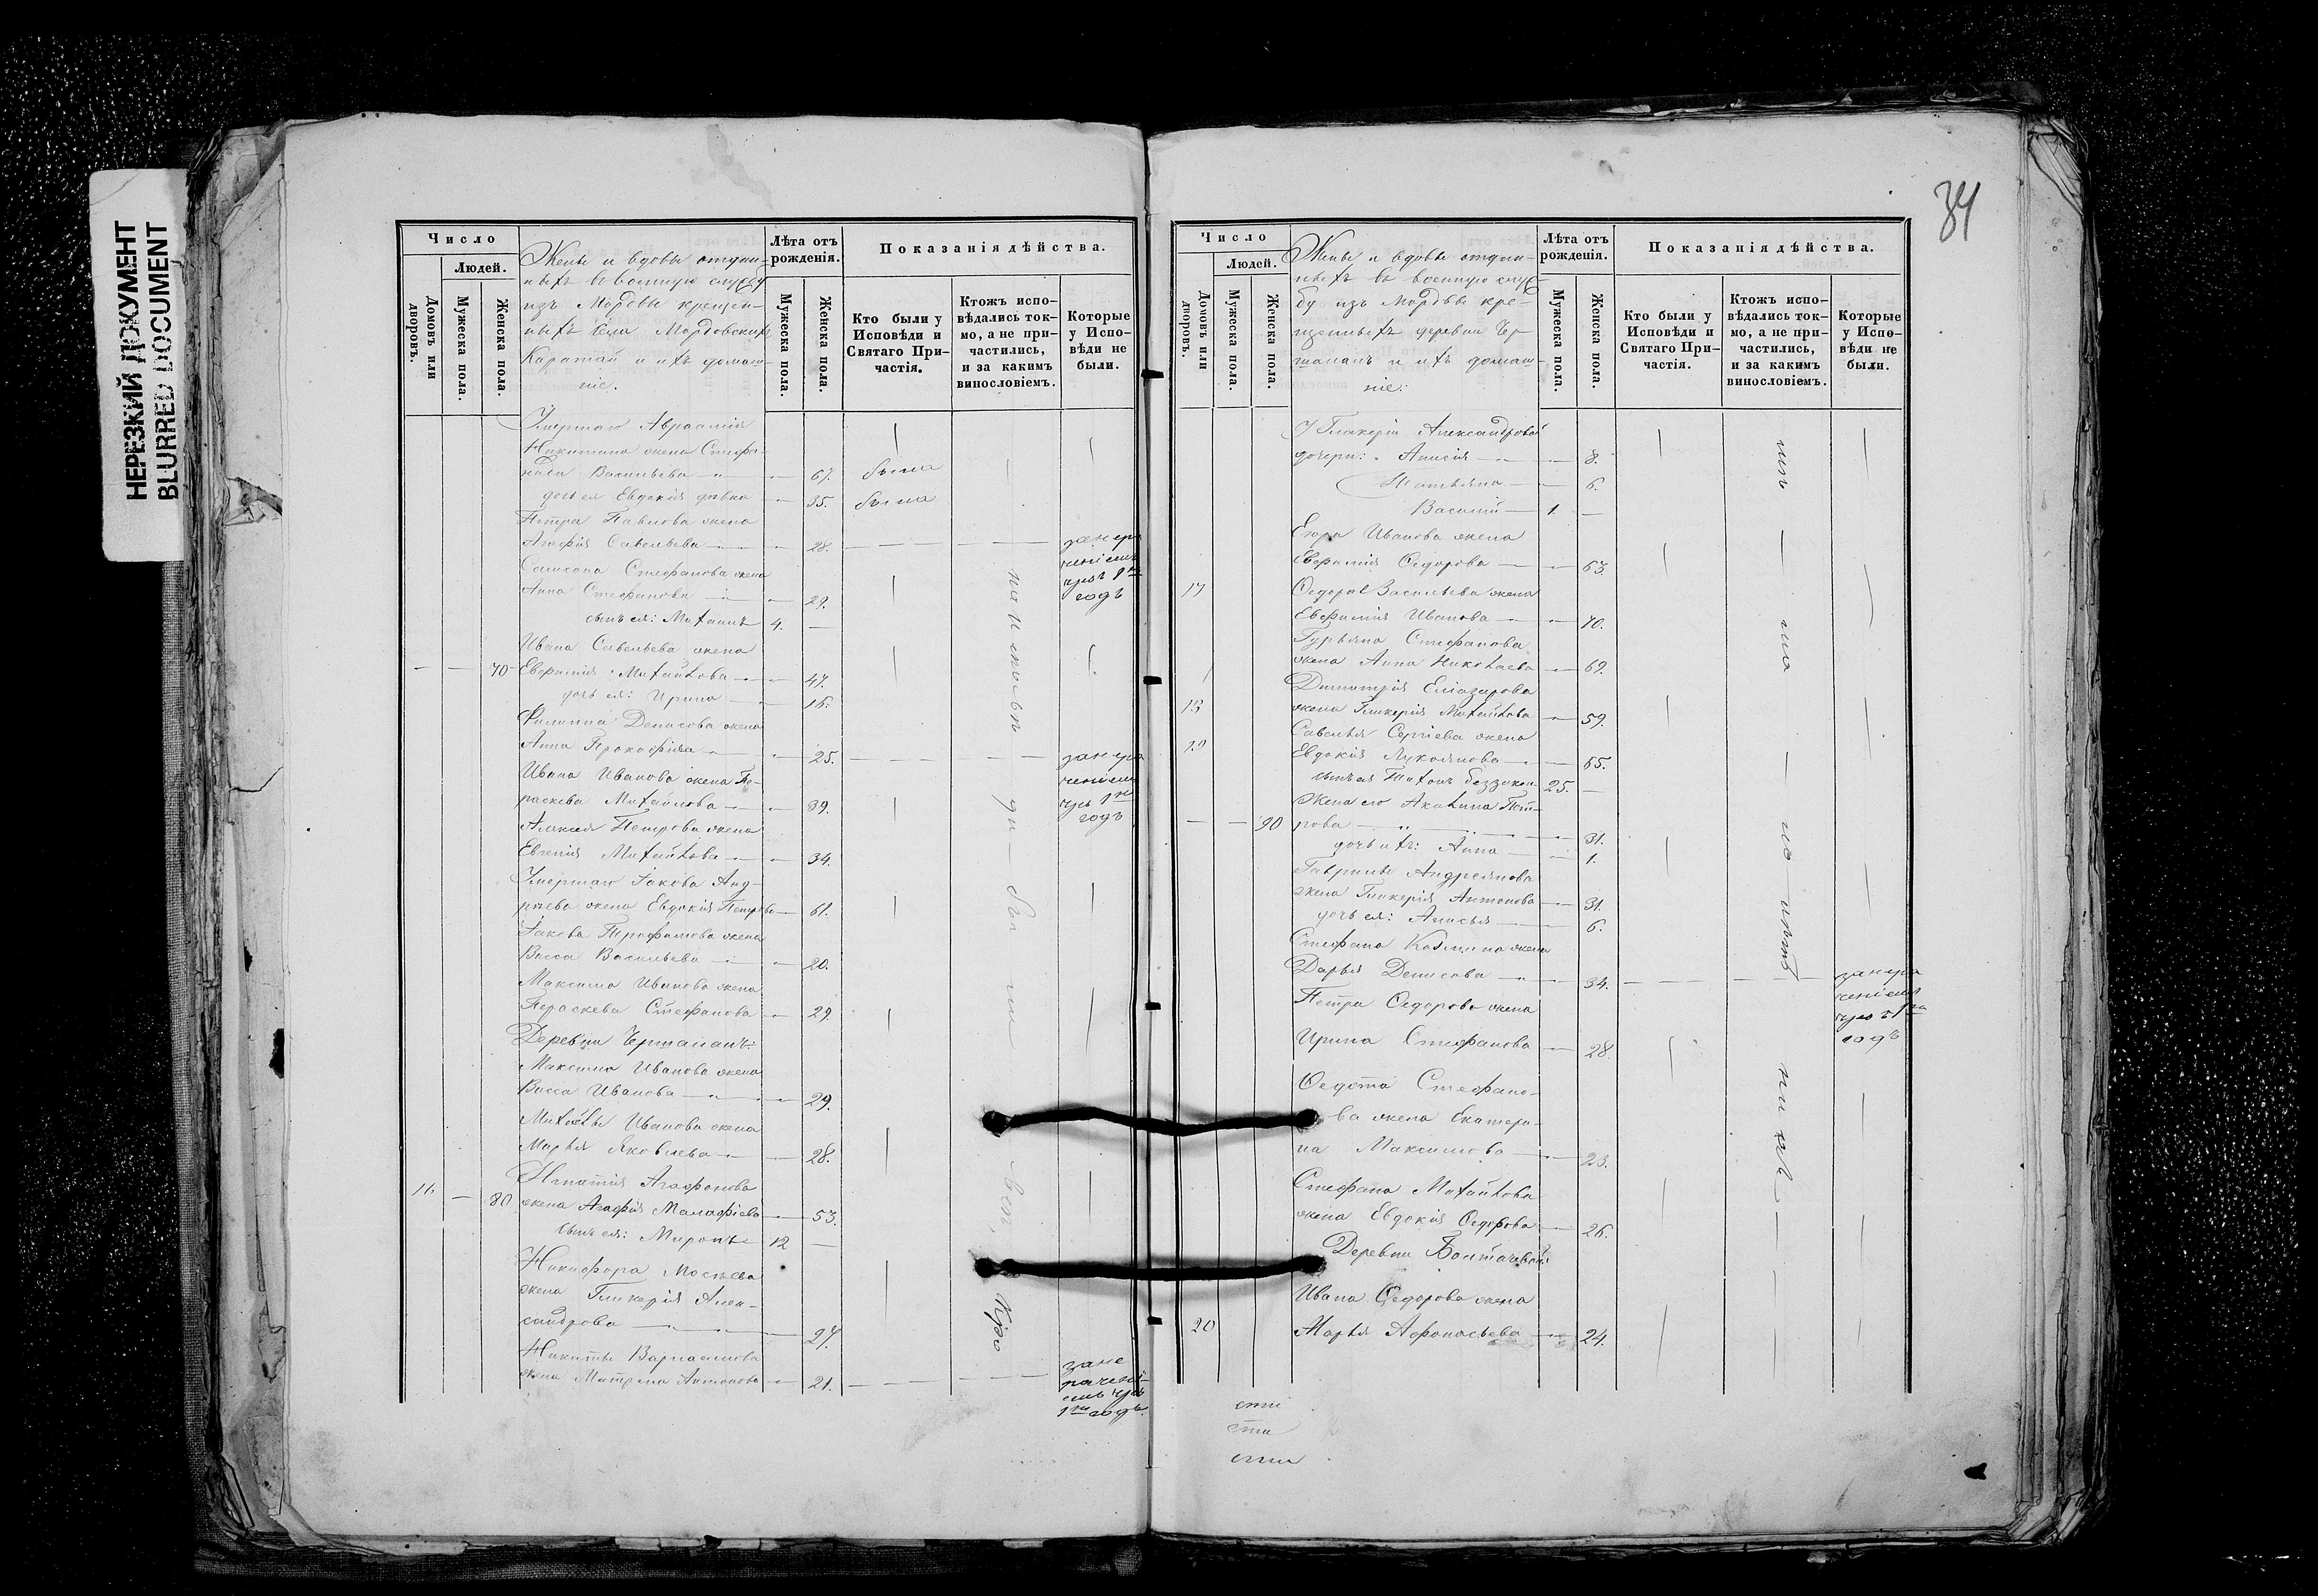 НЕРЕЗКИЙ ДОКУМЕНТ
BLURRED DOCUMENT
Число
Людей.
Домовъ или дворовъ.
Мужеска пола.
Женска пола.
Жены и вдовы отдан-
ныхъ въ военную службу
изъ Мордвы крещен-
ныхъ села Мордовскихъ
Каратай и ихъ домаш-
ніе.
Лѣта отъ рожденія.
Мужеска пола.
Женска пола.
Показанія дѣйства.
Кто были у Исповѣди и Святаго При-частія.
Ктожъ испо-вѣдались ток-мо, а не при-частились, и за какимъ винословіемъ.
Которые у Испо-вѣди не были.
Умершаго Авраамія
Никитина жена Стефа-
нида Васильева 67. была
дочь ея Евдокія дѣвка 35. была
Петра Павлова жена
Агафія Савельева 28.
Самсона Стефанова жена
Анна Стефанова 29.
сынъ ея: Михаилъ 4.
Ивана Савельева жена
70 Евфимія Михайлова 47.
дочь ея: Ирина 16.
Филиппа Денисова жена
Анна Прокофіева 25.
Ивана Иванова жена Па-
раскева Михайлова 39.
Алексѣя Петрова жена
Евгенія Михайлова 34.
Умершаго Іакова Анд-
рѣева жена Евдокія Петрова 61.
Іакова Трофимова жена
Васса Васильева 20.
Максима Иванова жена
Параскева Стефанова 29.
Деревни Чершаланъ:
Максима Иванова жена
Васса Иванова 29.
Иванова жена
Марья Яковлева 28.
Игнатія Агафонова
16 80 жена Агафія Малафіева 53.
сынъ ея: Миронъ 12
Никифора Мосѣева
жена Гликерія Алек-
сандрова 27.
Никиты Варламова
жена Матрена Антонова 21.
за не
раченi-
емъ чрез
1 годъ.
34
Число
Людей.
Домовъ или дворовъ.
Мужеска пола.
Женска пола.
Жены и вдовы отдан-
ныхъ въ военную служ-
бу изъ Мордвы кре-
щенныхъ деревни Чер-
шаланъ и ихъ домаш-
ніе:
Лѣта отъ рожденія.
Мужеска пола.
Женска пола.
Показанія дѣйства.
Кто были у Исповѣди и Святаго При-частія.
Ктожъ испо-вѣдались ток-мо, а не при-частились, и за какимъ винословіемъ.
Которые у Испо-вѣди не были.
У Гликеріи Александровой
дочери: Анисія 8.
Татьяна 6.
Василій 1
Егора Иванова жена
Евфимія Ѳедорова 63.
17 Ѳедора Васильева жена
Евфимія Иванова 70.
Гурьяна Стефанова
жена Анна Николаева 69.
Димитрія Елиазарова
18 жена Гликерія Михайлова 59.
Савелья Сергіева жена
19 Евдокія Лукоянова 65.
сынъ ея Тихонъ беззакон 25.
Жена его Акилина Пет-
90 рова 31.
дочь ихъ: Анна 1.
Гаврилы Андреянова
жена Гликерія Антонова 31.
дочь ея: Анисья 6.
Стефана Козмина жена
Дарья Денисова 34.
Петра Ѳедорова жена
Ирина Стефанова 28.
Ѳедота Стефано-
ва жена Екатери-
на Максимова 23.
Стефана Михайлова
жена Евдокія Ѳедорова 26.
Деревни Балтачевой:
Ивана Ѳедорова жена
20 Марья Афонасьева 24.